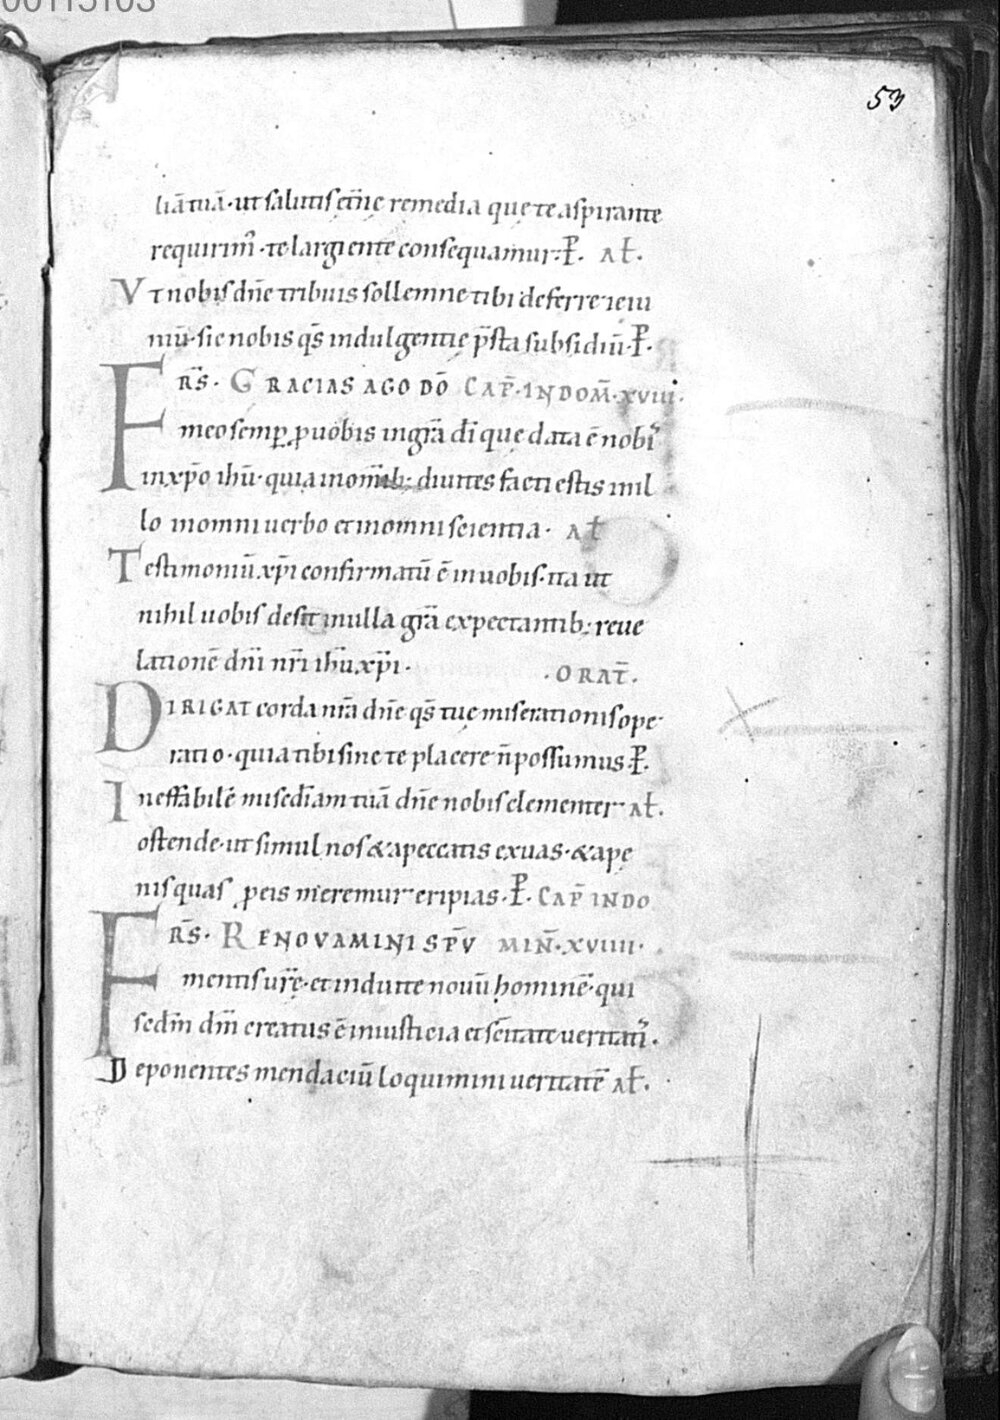 00113103
53
liā tuā· ut salutis et̄nę remedia quę te aspirante
requirim᷒· te largiente consequamur· P̄. Al̄.
Vt nobis dn̄e tribuis sollemne tibi deferre ieiu
niū· sic nobis qs̄ indulgentię p̄sta subsidiū· P̄.
FRS̄· GRACIAS AGO DŌ CAP̄· IN DOM̄· XVIII·
meo semꝑ ꝓ uobis in gr̄a dī quę data ē nobis
in xp̄o ihū· quia in omīb; diuites facti estis in il
lo in omni uerbo et in omni scientia· Al̄
Testimoniū xp̄i confirmatū ē in uobis· ita ut
nihil uobis desit in ulla gr̄a expectantib; reue
lationē dn̄i nr̄i ihū xp̄i· ·ORAT̄·
DIRIGAT corda nr̄a dn̄e qs̄ tuę miserationis ope
ratio· quia tibi sine te placere n̄ possumus· P̄.
Ineffabilē misedīam tuā dn̄e nobis clementer Al̄.
ostende· ut simul nos & a peccatis exuas· & a pe
nis quas ꝓ eis meremur eripias· P̄. CAP̄ IN DO
FRS̄· RENOVAMINI SPV̄ MIN̄· XVIIII·
mentis ur̄ę· et induite nouū hominē· qui
sedm̄ dm̄ creatus ē in iusticia et sc̄itate ueritatis·
Deponentes mendaciū loquimini ueritatē Al̄.